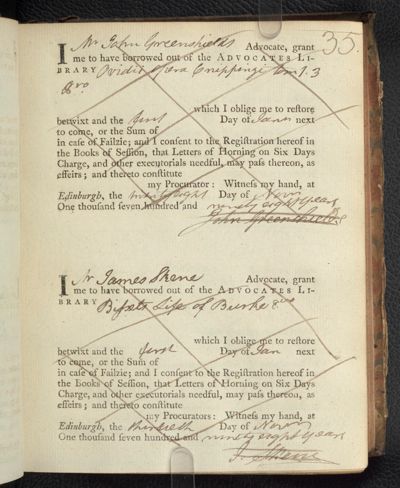 35.
I Mr John Greenshields Advocate, grant
me to have borrowed out of the ADVOCATES LI-
BRARY Ovidii Opera Cnippingi Tom. 3
8vo
which I oblige me to restore
betwixt and the first Day of Janr next
to come, or the Sum of
in case of Failzie; and I consent to the Registration hereof in
the Books of Session, that Letters of Horning on Six Days
Charge, and other executorials needful, may pass thereon, as
effeirs; and thereto constitute
my Procurator: Witness my hand, at
Edinburgh, the twenty eight Day of Novr
One thousand seven hundred and ninety eight years
John Greenshields
I Mr James Skene Advocate, grant
me to have borrowed out of the ADVOCATES LI-
BRARY Bissets Life of Burke 8vo
which I oblige me to restore
betwixt and the first Day of Jan next
to come, or the Sum of
in case of Failzie; and I consent to the Registration hereof in
the Books of Session, that Letters of Horning on Six Days
Charge, and other executorials needful, may pass thereon, as
effeirs; and thereto constitute
my Procurators: Witness my hand, at
Edinburgh, the thirtieth Day of Novr
One thousand seven hundred and ninety eight years
Js. Skene